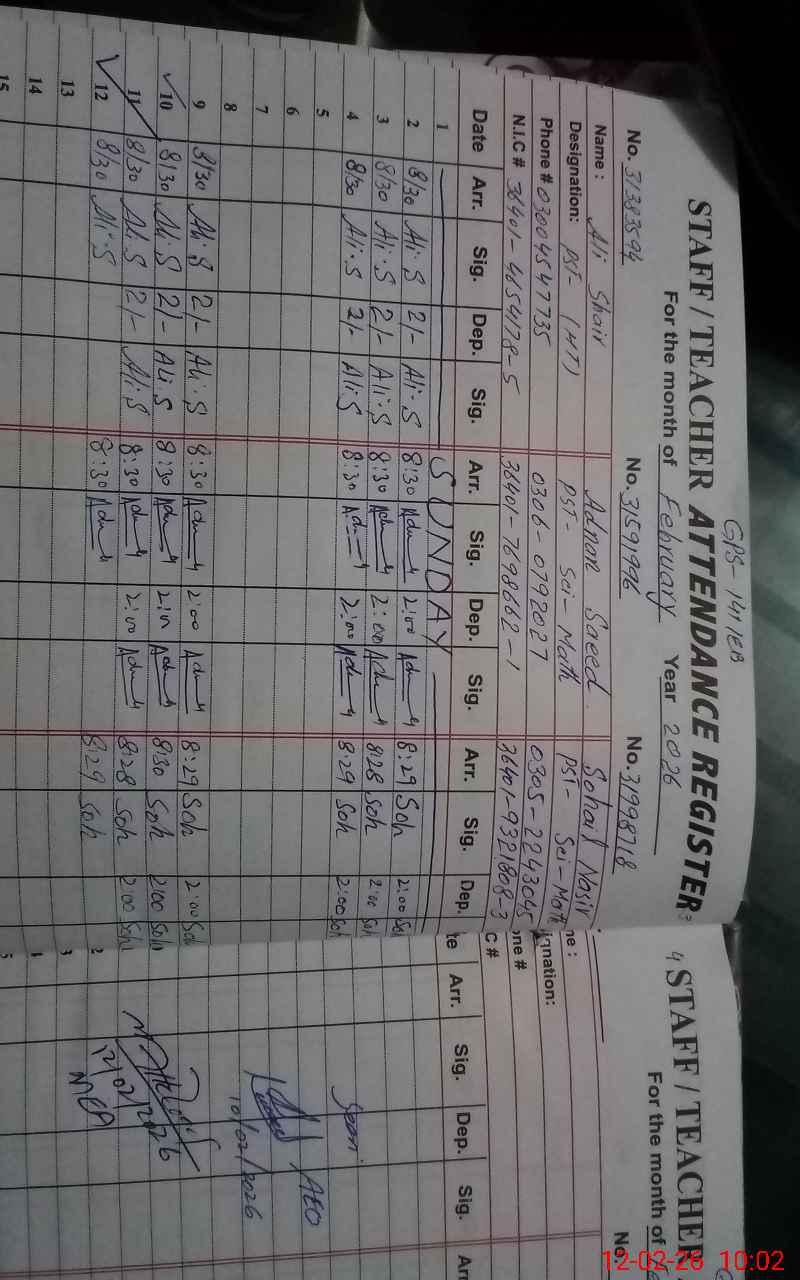 GPS-141/EB
STAFF / TEACHER ATTENDANCE REGISTER
For the month of February Year 2026
No. 31383594 No. 31591996 No. 31998718
Name: Ali Shair Adnan Saeed Sohail Nasir
Designation: PST- (HT) PST- Sci-Math PST- Sci-Math
Phone # 03004547735 0306-0792027 0305-2243045
N.I.C # 36401-4654178-5 36401-7698662-1 36401-9321808-3
Date Arr. Sig. Dep. Sig. Arr. Sig. Dep. Sig. Arr. Sig. Dep.
1 SUNDAY
2 8/30 Ali.S 2/- Ali.S 8:30 2:00 8:29 Soh 2:00 Soh
3 8/30 Ali.S 2/- Ali.S 8:30 2:00 8:28 Soh 2:00 Soh
4 8/30 Ali.S 2/- Ali.S 8:30 2:00 8:29 Soh 2:00 Soh
5
6
7
8
9 8/30 Ali.S 2/- Ali.S 8:30 2:00 8:29 Soh 2:00 Soh
10 8/30 Ali.S 2/- Ali.S 8:30 2:00 8:30 Soh 2:00 Soh
11 8/30 Ali.S 2/- Ali.S 8:30 2:00 8:28 Soh 2:00 Soh
12 8/30 Ali.S 8:30 8:29 Soh
13
14
15
4 STAFF / TEACHER
For the month of
No.
me:
ignation:
one #
C #
te Arr. Sig. Dep. Sig. Arr
AEO
10/02/2026
12/02/2026
MEA
2
3
12-02-26 10:02